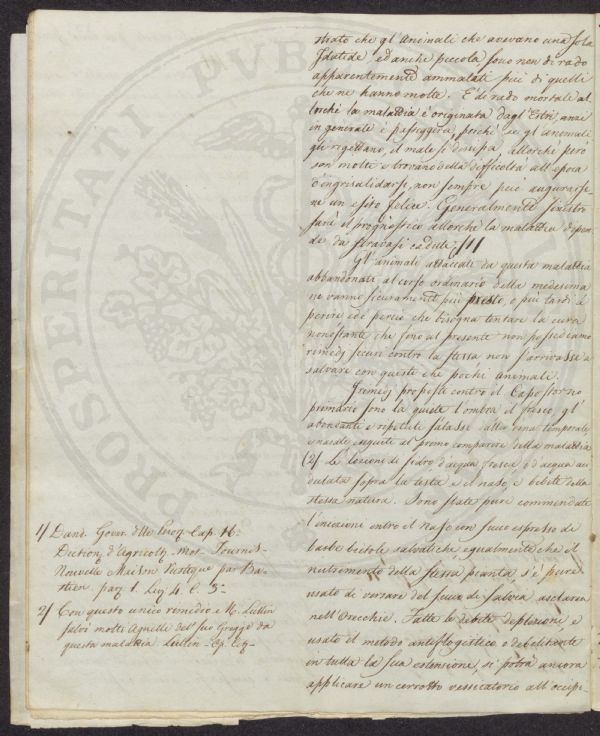 strato che gl'Animali che avevano una sola
Idatide, ed anche piccola sono non di rado
apparentemente ammalati più di quelli
che ne hanno molte. È di rado mortale al
lorchè la malattia è originata dagl'Estri, anzi
in generale è passeggiera, perchè se gl'animali
gli rigettano, il male si dissipa allorchè però
son molti e trovano della difficoltà all'epoca
d'ingrisalidarsi, non sempre può augurarse
ne un esito felice. Generalmente sinistro
sarà il prognostico allorchè la malattia dipen
de da stravasi
Gl'animali attaccati da questa malattia
abbandonati al corso ordinario della medesima
ne vanno sicuramente più presto, o più tardi a
perire ed è perciò che bisogna tentare la cura
nonostante che sono al presente non possediamo
rimedj sicuri contro la stessa non s'arrivasse a
salvare con questi che pochi animali.
I rimedj proposti contro il Capostorno
primario sono la quiete l'ombra il fresco, gl'
abondanti e repetuti salassi dalla vena temporale
e nasale eseguiti al primo comparire della malattia
(2) Le lozioni di fredo d'acqua fresca e d'acqua aci
dulata sopra la testa e il naso, e bibite della
stessa natura. Sono state pure commendate
l'iniezioni entro il Naso con succo espresso di
barbe bietole salvatiche egualmente che il
nutrimento della stessa pianta, s'è pure
usato di versare del succo di salvia sclarea
nell'Orecchie. Fatte le debite deplezioni e
usato il metodo antiflogistico o debilitante
in tutta la sua estensione, si potrà ancora
applicare un cerotto vessicatorio all'occipi-
1/ Dand. Gover. delle Cap. 16.
Diction. d'Agricolt. Mot Tournis-
Nouvelle Maison Rustique par Ba-
stien part 1. Liv. 4 C. 3.
2/ Con questo unico remedio il M. Lullin
salvò molti Agnelli del suo Gregge da
questa malattia Lullin
PROSPERITATI PVBLI